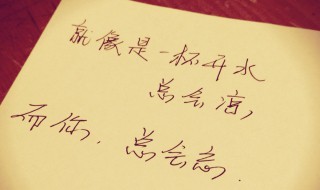 就像是一杯开水
总会凉,
而你,总会忘.